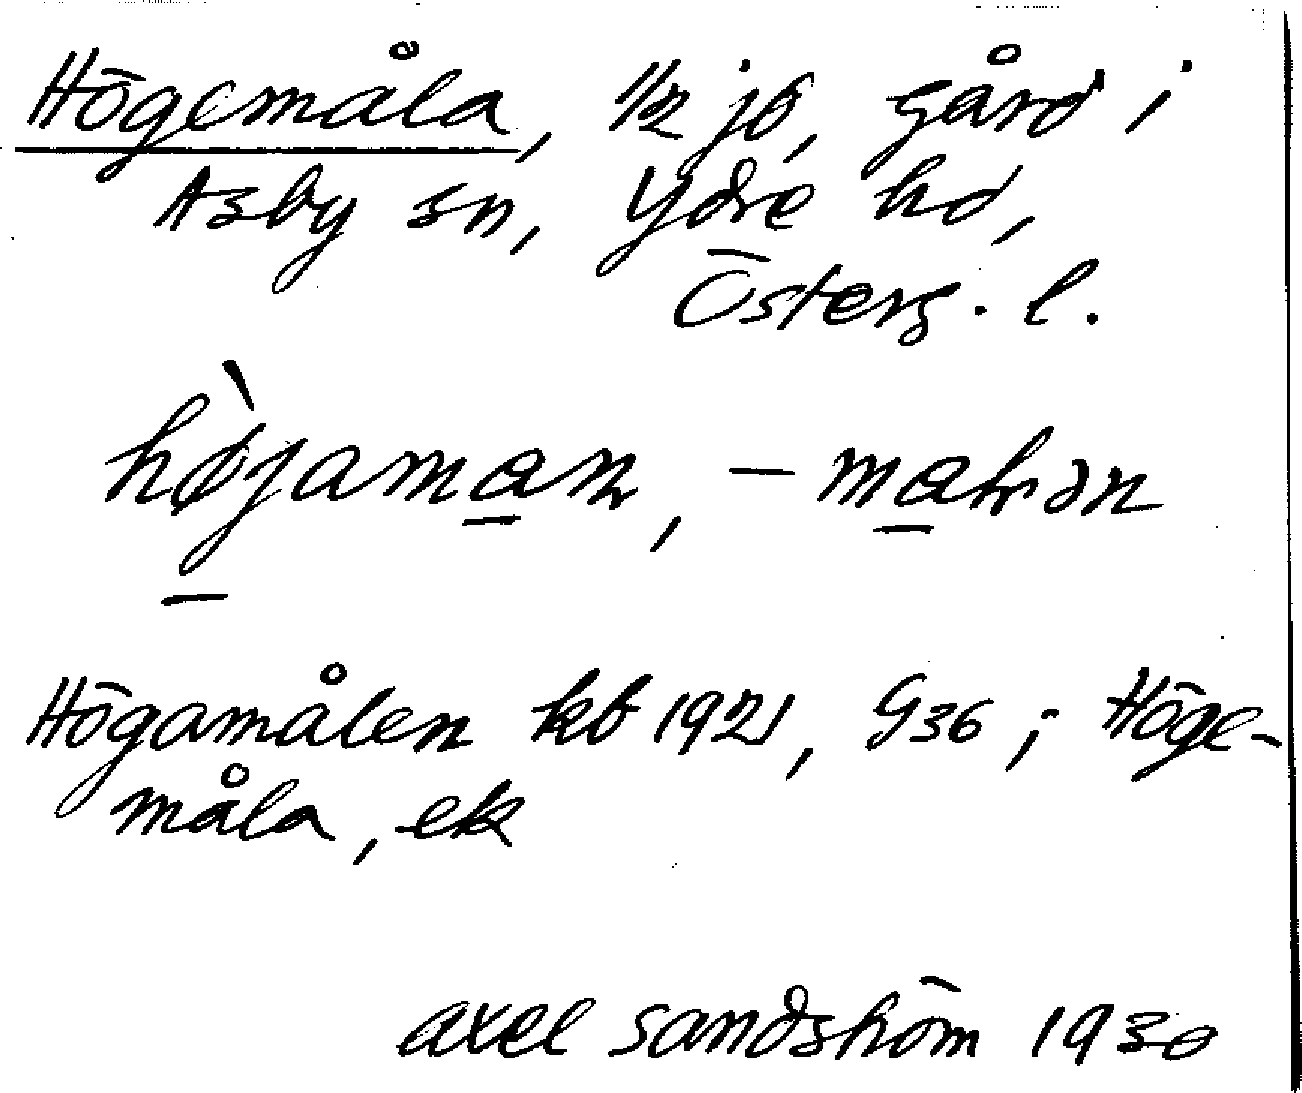 Högemåla, 1/2 jb, gård i
Asby sn, Ydre hd,
Österg. l.
Högamålen kb 1921, G36; Höge-
måla, ek
axel sandström 1930